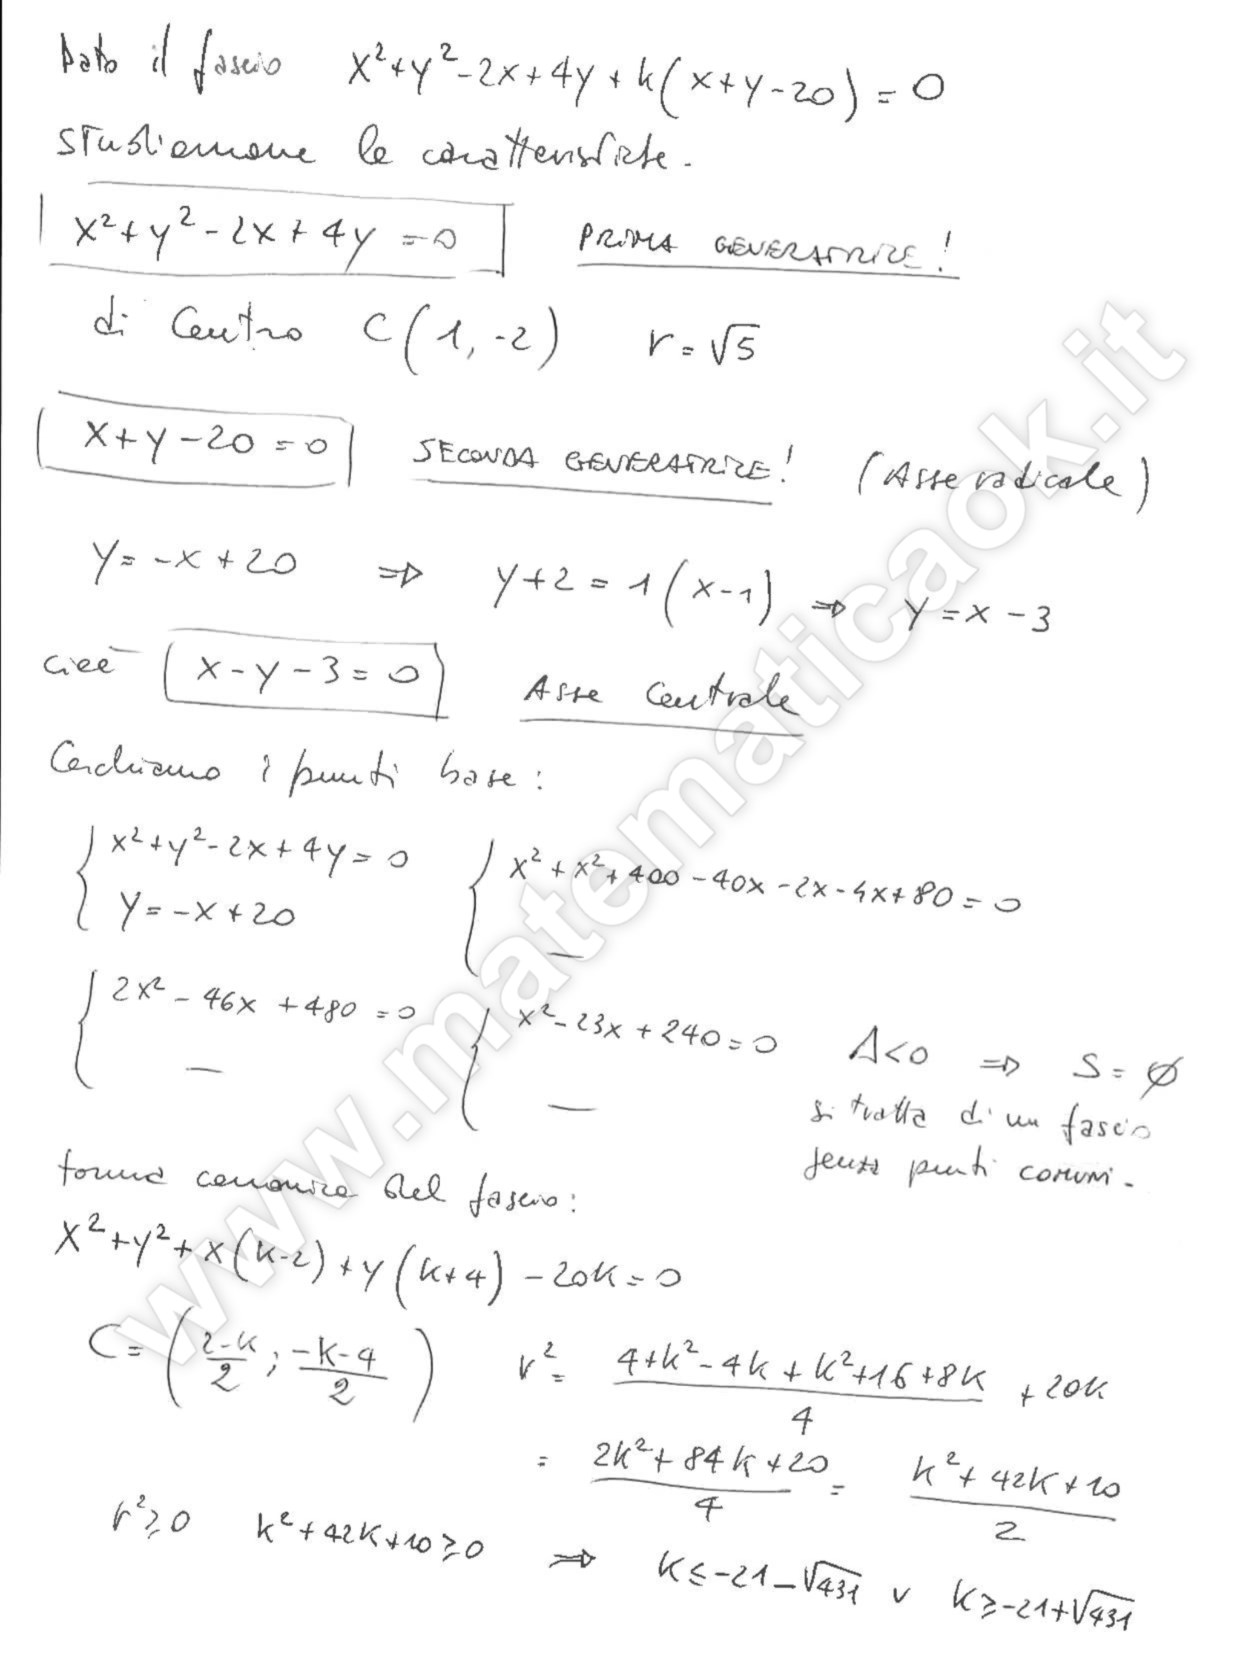 Dato il fascio x²+y²-2x+4y+k(x+y-20)=0
studiamone le caratteristiche.
x²+y²-2x+4y=0 PRIMA GENERATRICE!
di Centro C(1,-2) r=√5
x+y-20=0 SECONDA GENERATRICE! (Asse radicale)
y=-x+20 ⇒ y+2=1(x-1) ⇒ y=x-3
cioè x-y-3=0 Asse Centrale
Cerchiamo i punti base:
{x²+y²-2x+4y=0 {x²+x²+400-40x-2x-4x+80=0
y=-x+20 —
{2x²-46x+480=0 {x²-23x+240=0 Δ<0 ⇒ S=∅
— — si tratta di un fascio
senza punti comuni.
forma canonica del fascio:
x²+y²+x(k-2)+y(k+4)-20k=0
C=(2-k/2; -k-4/2) r²= 4+k²-4k+k²+16+8k/4 +20k
= 2k²+84k+20/4 = k²+42k+10/2
r²≥0 k²+42k+10≥0 ⇒ k≤-21-√431 v k≥-21+√431
www.matematicaok.it